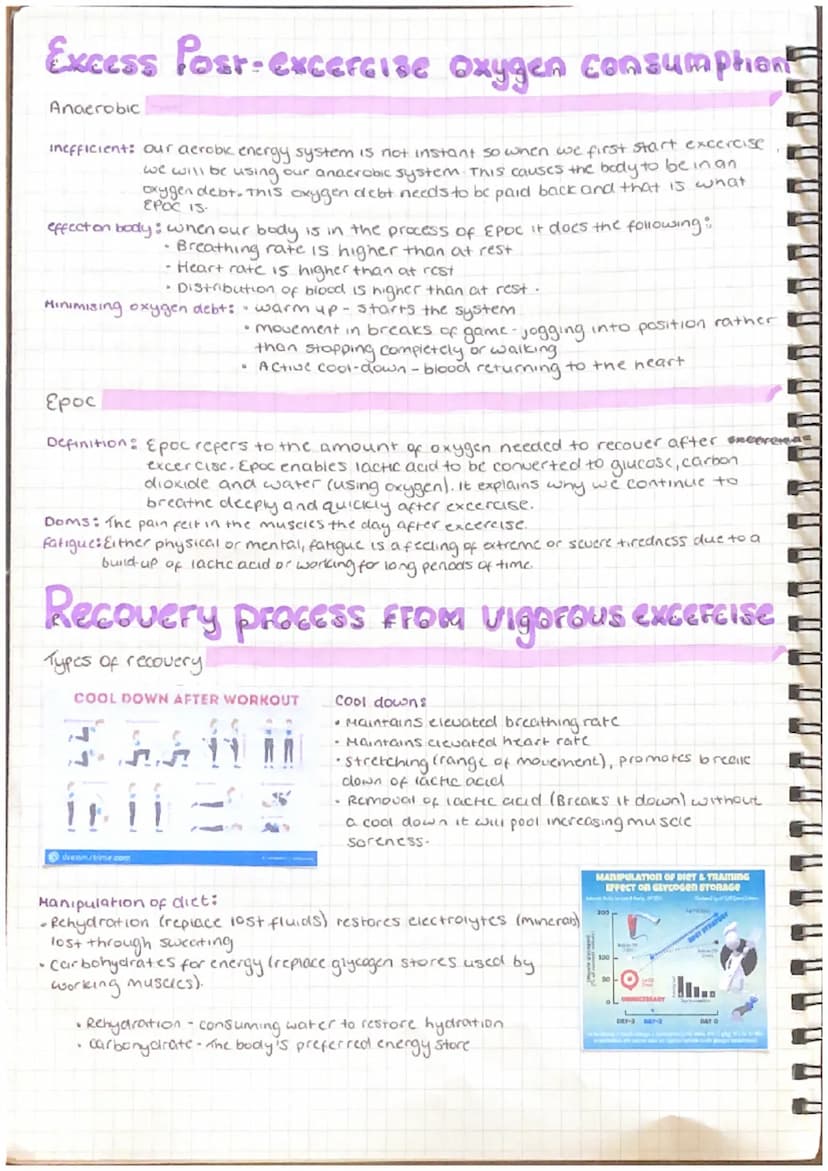 Excess Post-excercise oxygen consumption
Anaerobic
Inefficient: our aerobic energy system is not instant so when we first start excercise
we will be using our anaerobic system. This causes the body to be in an
oxygen debt. This oxygen debt needs to be paid back and that is what
EPOC is.
effect on body: when our body is in the process of EPOC it does the following:
• Breathing rate is higher than at rest
• Heart rate is higher than at rest
• Distribution of blood is higher than at rest.
Minimising oxygen debt: • warm up - starts the system
• movement in breaks of game - jogging into position rather
than stopping completely or walking
• Active cool-down - blood returning to the heart
Epoc
Definition: Epoc refers to the amount of oxygen needed to recover after
excercise. Epoc enables lactic acid to be converted to glucose, carbon
dioxide and water (using oxygen). It explains why we continue to
breathe deeply and quickly after excercise.
Doms: The pain felt in the muscles the day after excercise.
Fatigue: Either physical or mental, fatigue is a feeling of extreme or severe tiredness due to a
build-up of lactic acid or working for long periods of time.
Recovery process from vigorous excercise
Types of recovery
COOL DOWN AFTER WORKOUT
dreamstime.com
Cool down:
• Maintains elevated breathing rate
• Maintains elevated heart rate
• Stretching (range of movement), promotes break
down of lactic acid
• Removal of lactic acid (Breaks it down) without
a cool down it will pool increasing muscle
soreness.
Manipulation of diet:
• Rehydration (replace lost fluids) restores electrolytes (minerals)
lost through sweating
• Carbohydrates for energy (replace glycogen stores used by
working muscles).
• Rehydration - consuming water to restore hydration
• Carbohydrate - The body's preferred energy store
MANIPULATION OF DIET & TRAINING
EFFECT ON GLYCOGEN STORAGE
200
100
50
0
UNNECESSARY
DAY-3 DAY-2 DAY 0